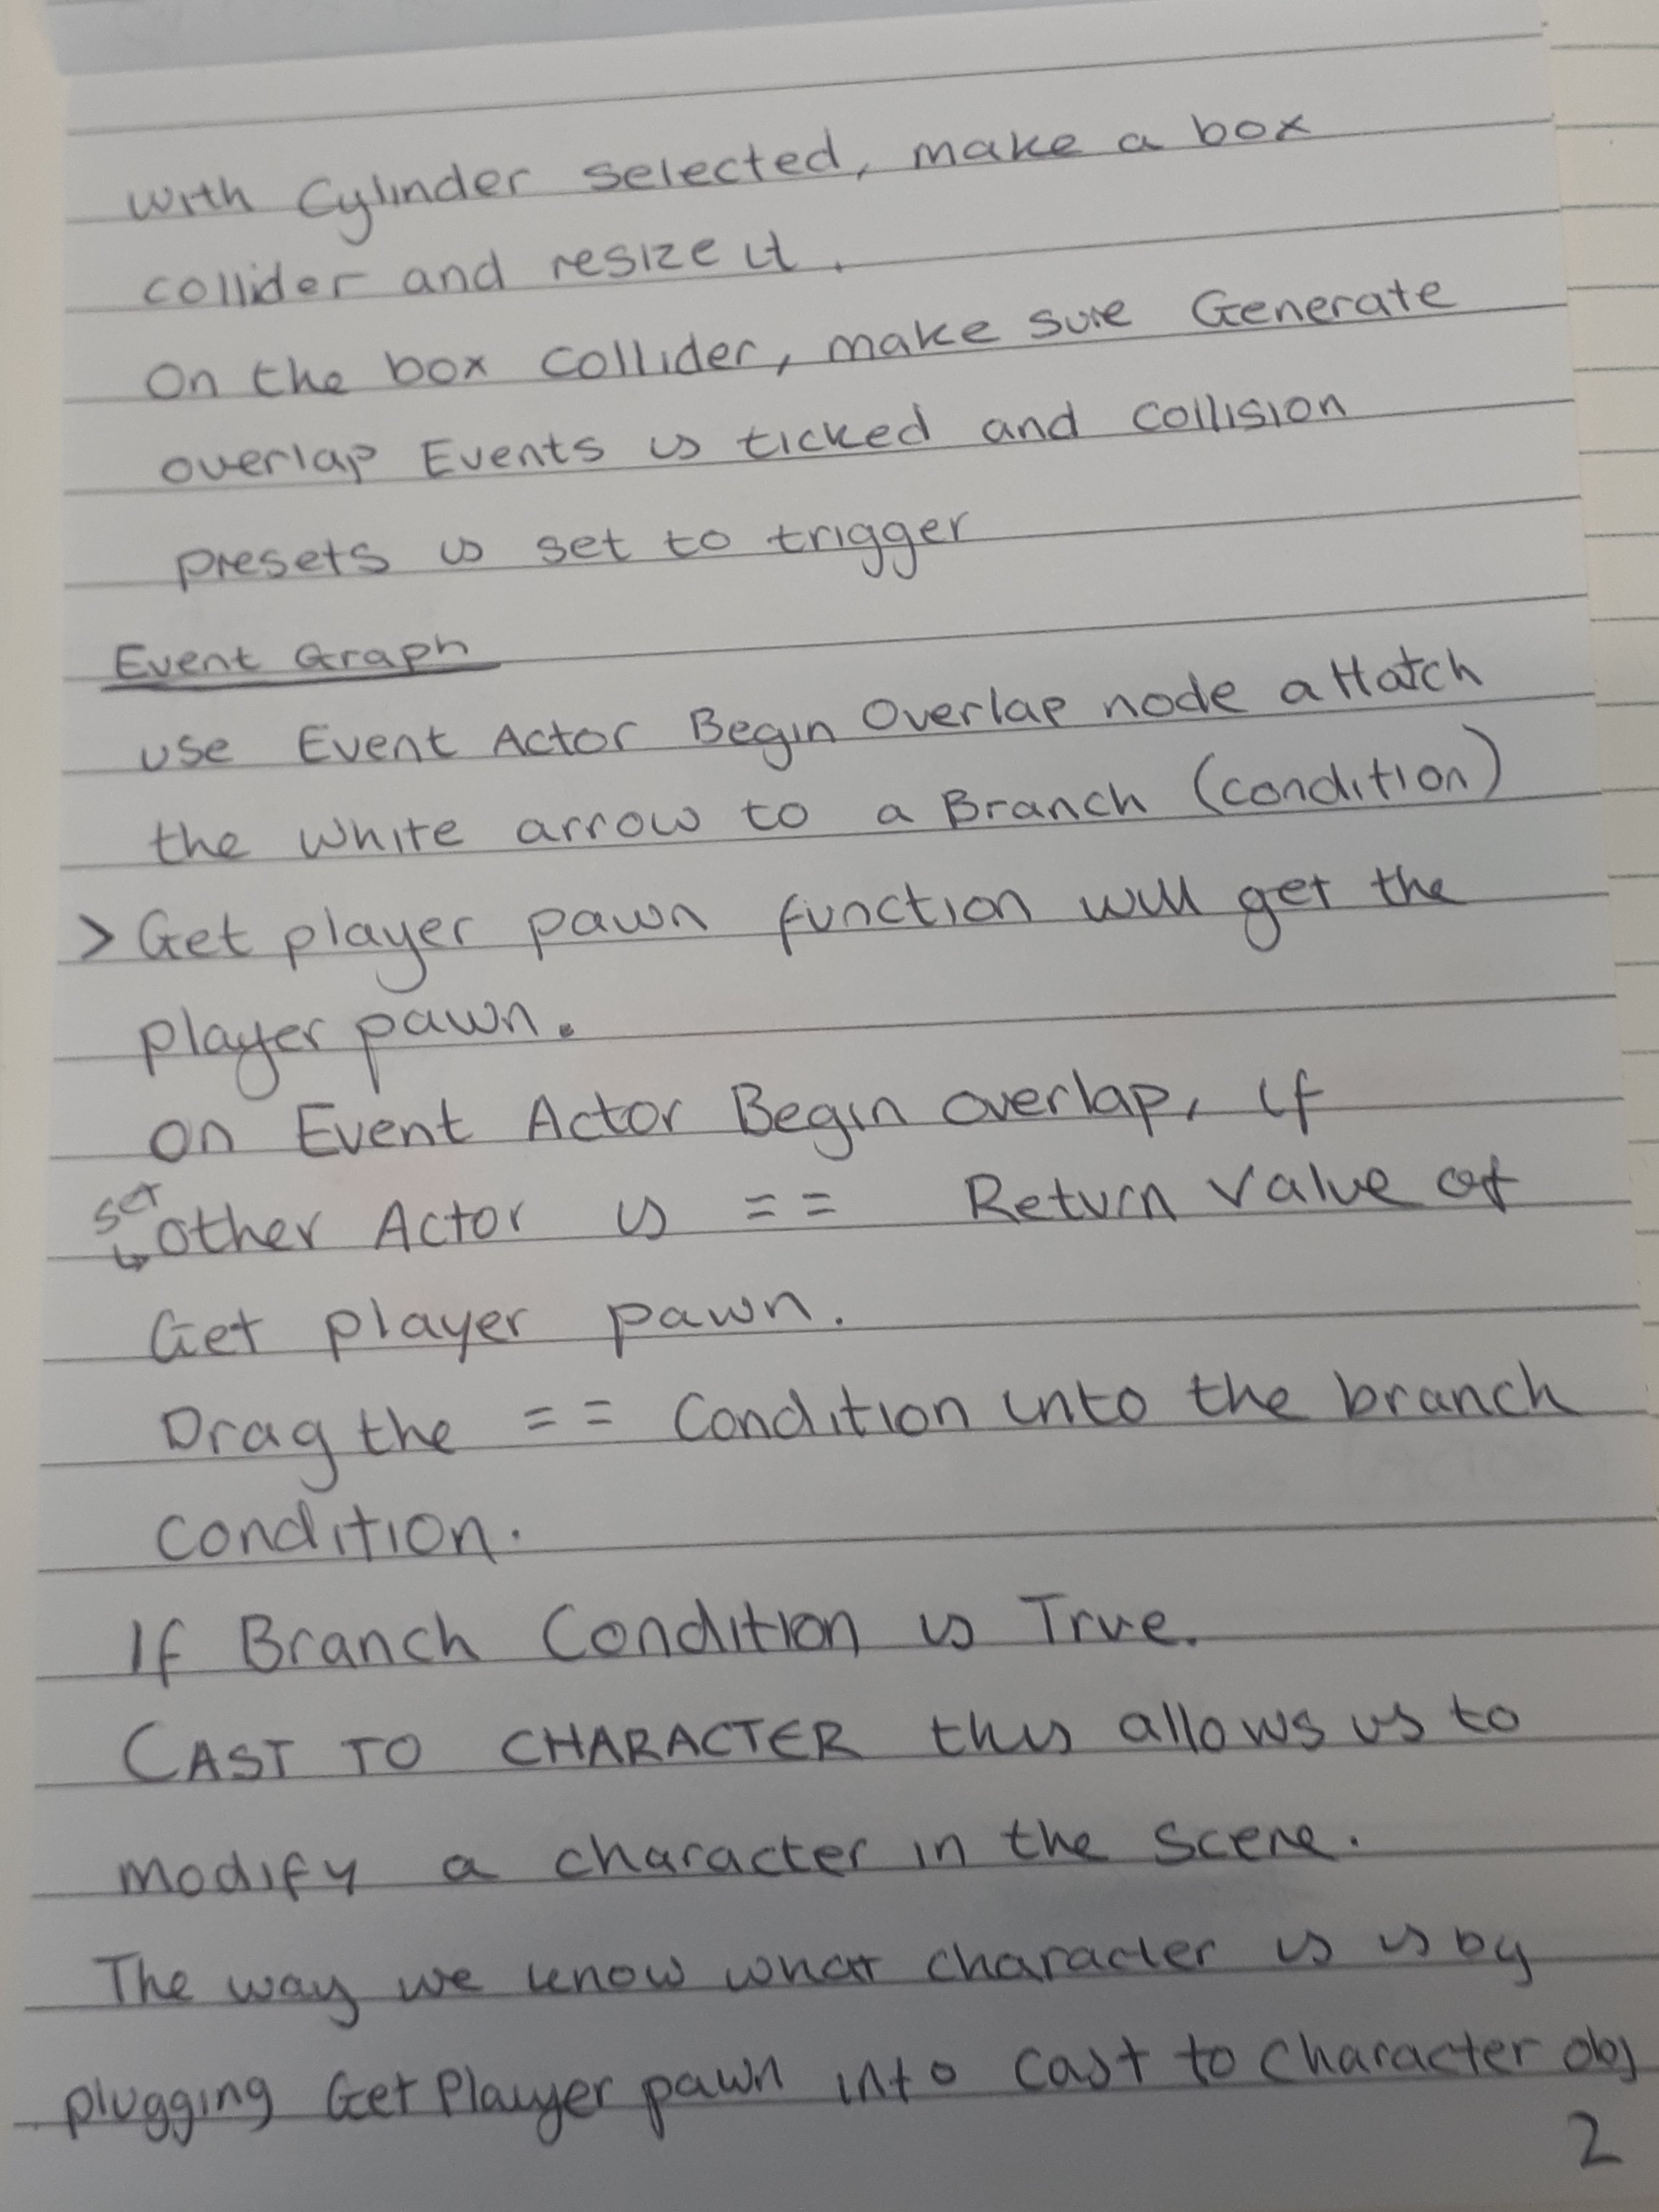 with Cylinder selected, make a box
collider and resize it.
On the box collider, make sure Generate
overlap Events is ticked and collision
presets is set to trigger
Event Graph
use Event Actor Begin Overlap node attatch
the white arrow to a Branch (condition)
> Get player pawn function will get the
player pawn.
on Event Actor Begin overlap, if
set
↳ other Actor is == Return value of
Get player pawn.
Drag the == Condition into the branch
condition.
If Branch Condition is True.
CAST TO CHARACTER this allows us to
modify a character in the scene.
The way we know what character is is by
plugging Get Player pawn into cast to character obj
2